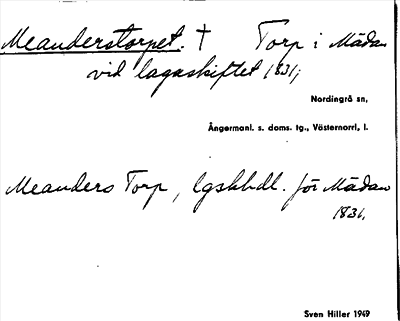 Meanderstorpet. † Torp i Mädan
vid lagaskiftet 1831;
Nordingrå sn,
Ångermanl. s. doms. tg., Västernorrl. l.
Meanders Torp, lgskhdl. för Mädan
1831.
Sven Hiller 1949